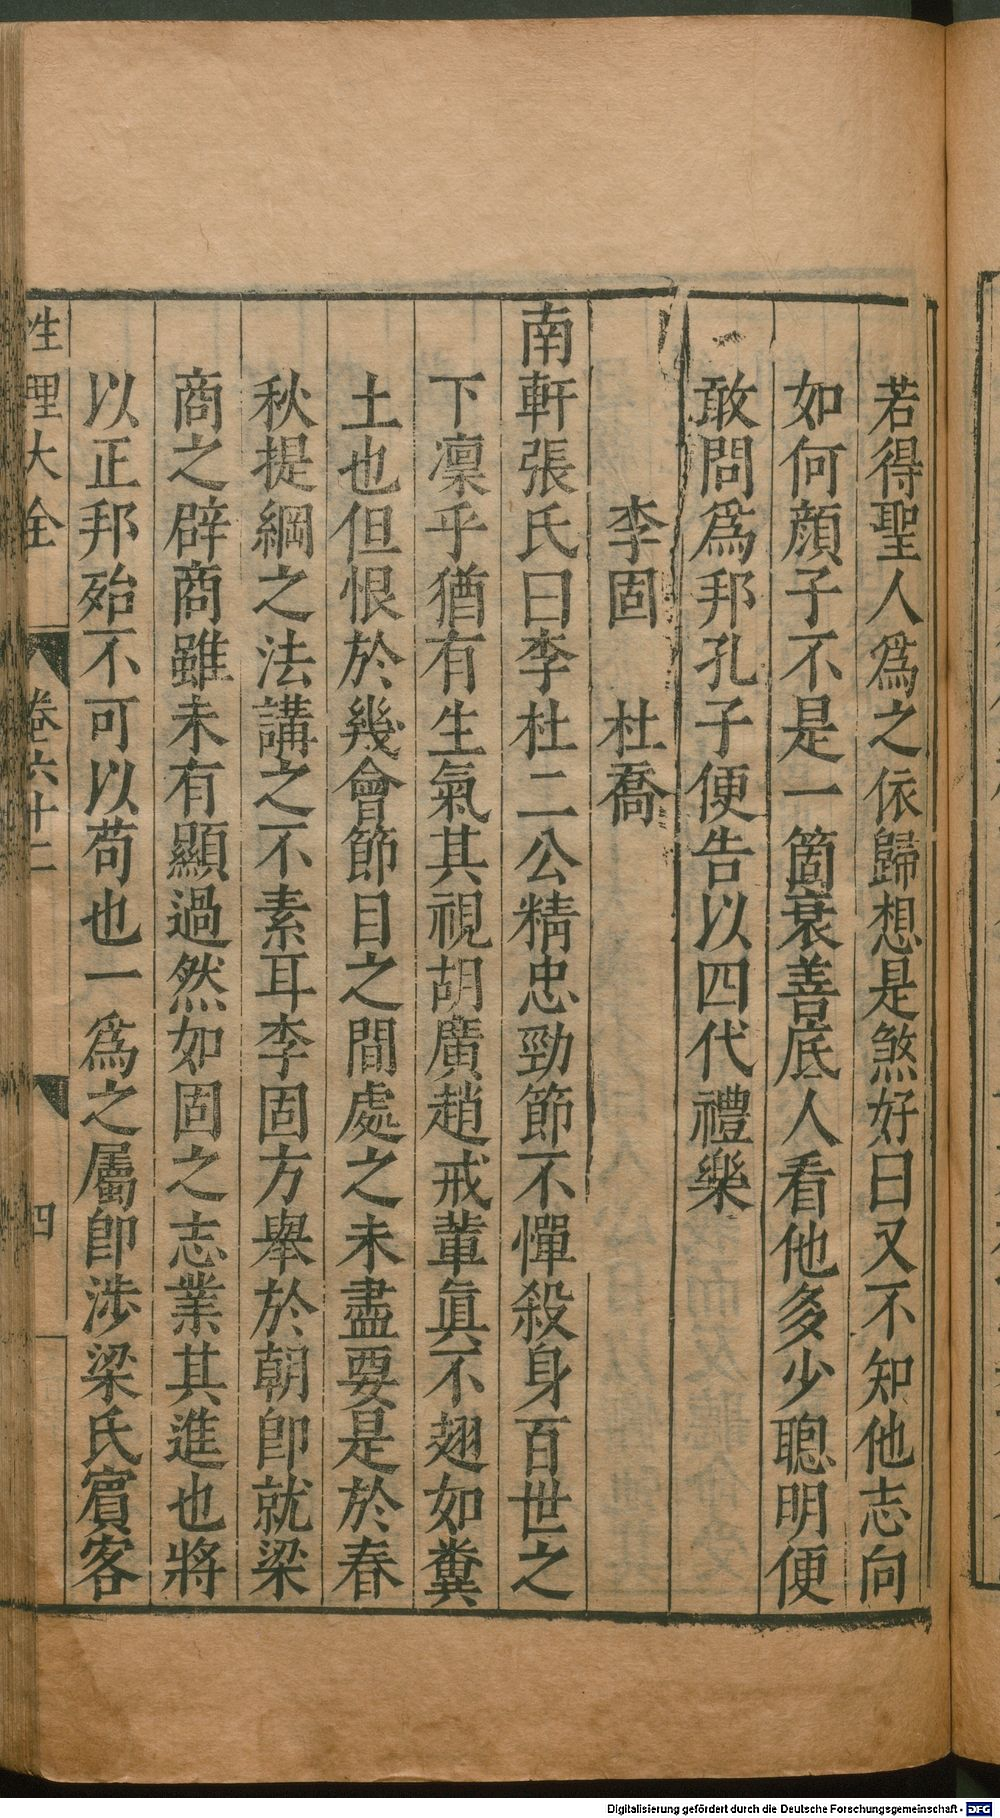 若得聖人爲之依歸想是煞好曰又不知他志向
如何顔子不是一箇衰善底人看他多少聰明便
敢問爲邦孔子便告以四代禮樂
李固　杜喬
南軒張氏曰李杜二公精忠勁節不憚殺身百世之
下凜乎猶有生氣其視胡廣趙戒輩眞不翅如糞
土也但恨於幾會節目之間處之未盡要是於春
秋提綱之法講之不素耳李固方舉於朝卽就梁
商之辟商雖未有顯過然如固之志業其進也將
以正邦殆不可以苟也一爲之屬卽涉梁氏賓客
性理大全　卷六十二　四
Digitalisierung gefördert durch die Deutsche Forschungsgemeinschaft - DFG